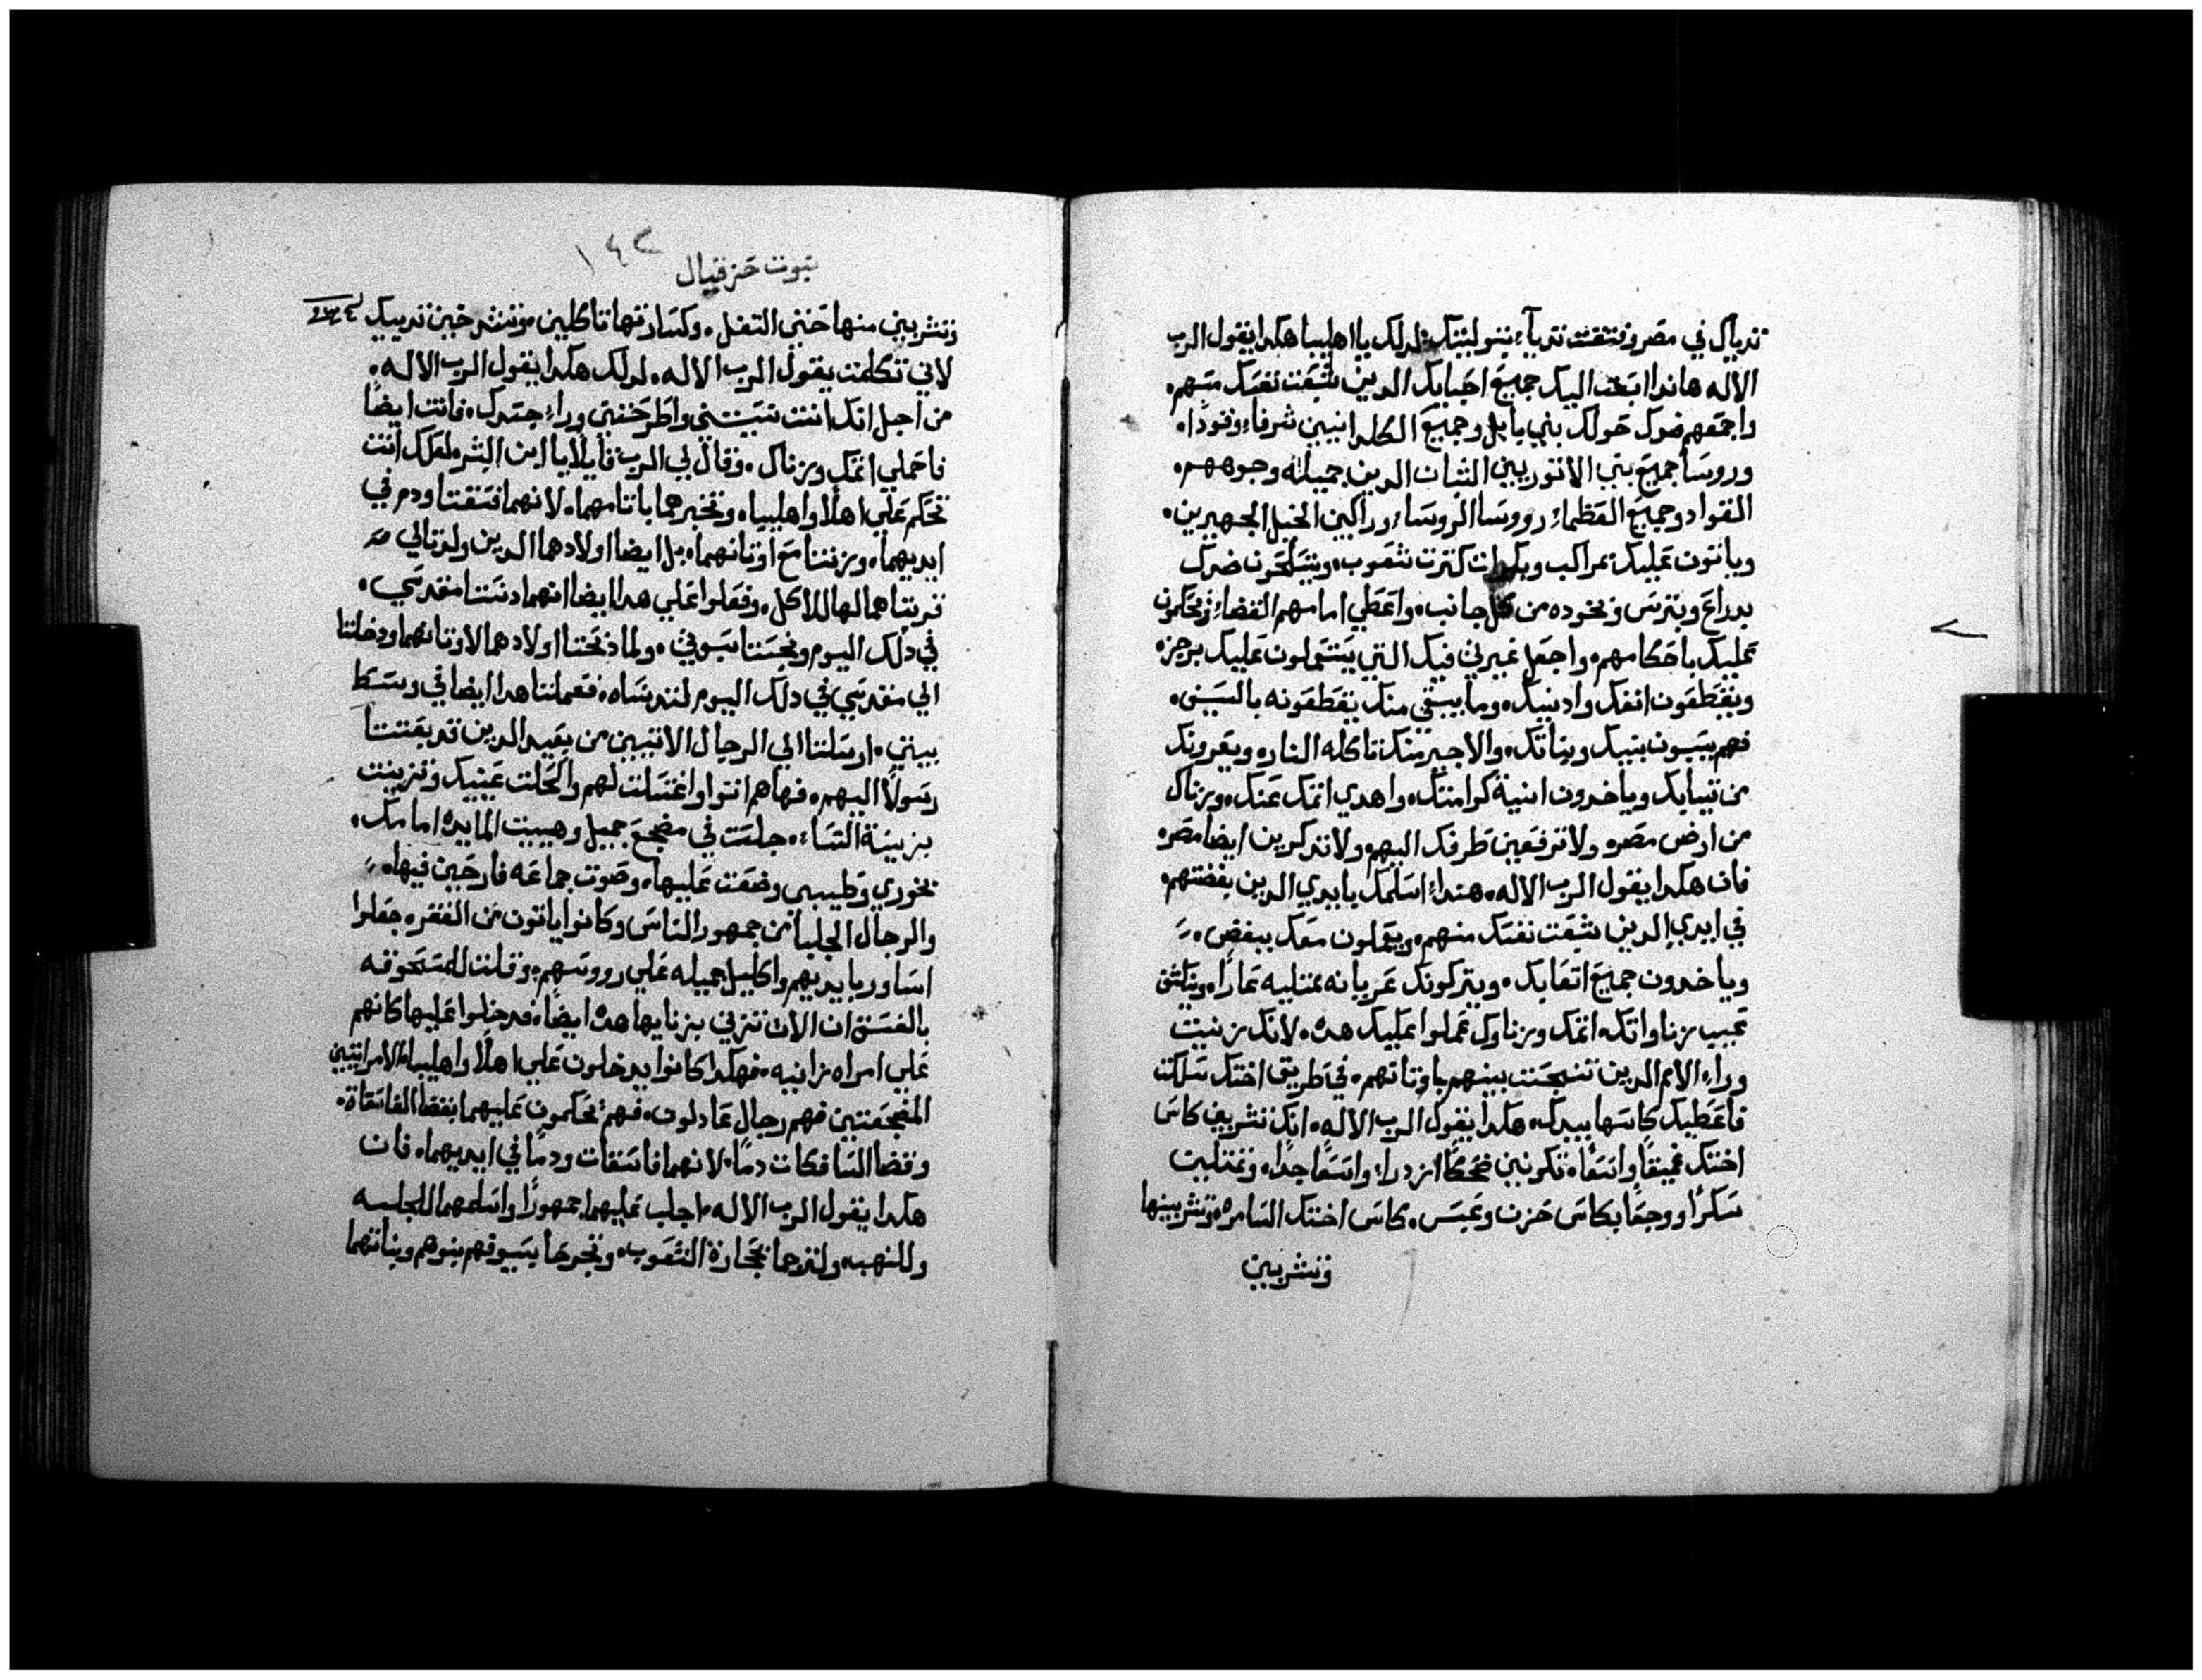 ثدياك في مصر وفتقت ثديا بتوليتك لدلك يا اهليبا هكدا يقول الرب
الاله هاندا ابعت اليك جميع احبايك الدين شبعت نفسك منهم
واجمعهم ضدك حولك بني بابل وجميع الكلدانيين شرفاء وقوداً
وروسا جميع بني الاتوريين الشبان الدين جميله وجوههم
القواد وجميع العظماء وروسا الروساء وراكبين الخيل الجهيرين
وياتون عليك بمراكب وبكرات كترت شعوب ويتسلحون ضدك
بدراع وبترس وبخوده من كل جانب واعطي امامهم القضاء ويحكمون
عليك باحكامهم واجعل غيرتي فيك التي يستعملون عليك برجزه
ويقطعون انفك وادنيك وما يبقي منك يقطعونه بالسيف
فهم يسبون بنيك وبناتك والاخير منك تاكله النار ويعرونك
من تيابك وياخدون انية كرامتك واهدي اتمك عنك وزناك
من ارض مصر ولا ترفعين طرفك اليهم ولا تدكرين ايضا مصر
فان هكدا يقول الرب الاله هنداء اسلمك بايدي الدين بغضتهم
في ايدي الدين شبعت نفسك منهم ويعملون معك ببغض
وياخدون جميع اتعابك ويتركونك عريانه ممتليه عاراً وينكشف
عيب زناواتك اتمك وزناوك عملوا عليك هده لانك زنيت
وراء الامم الدين تنجست بينهم باوتانهم في طريق اختك سلكت
فاعطيك كاسها بيدك هكدا يقول الرب الاله انك تشربين كاس
اختك عميقاً واتسعاً تكونين ضحكاً ازدراء واتسعاً جداً وتمتليت
سكراً ووجعاً بكاس حزن وعبس كاس اختك السامره وتشربينها
وتشربين
نبوت حزقيال
١٤٢
وتشربين منها حتي التفل وكسارتها تاكلين وتشرخين ثدييك
لاني تكلمت يقول الرب الاله لدلك هكدا يقول الرب الاله
من اجل انك انت نسيتني واطرحتني وراء جسدك فانت ايضاً
فاحملي اتمك وزناك وقال لي الرب قايلا يا ابن البشر لعلك انت
تحكم علي اهلا واهليبا وتخبرهما باتامهما لانهما فسقتا ودم في
ايديهما وزنتا مع اوتانهما بل ايضا اولادهما الدين ولدتا لي
قربتاهما لها للاكل وفعلوا علي هدا ايضا انهما دنستا مقدسي
في دلك اليوم ونجستا سبوتي ولما دبحتا اولادهما لاوتانهما ودخلتا
الي مقدسي في دلك اليوم لتدنساه فعملتا هدا ايضا في وسط
بيتي ارسلتا الي الرجال الاتيين من بعيد الدين قد بعتتا
رسولاً اليهم فهاهم اتوا واغتسلت لهم واكحلت عينيك وتزينت
بزينة النساء جلست في مضجع جميل وهييت المايده امامك
بخوري وطيبي وضعت عليها وصوت جماعه فارحين فيها
والرجال الجلبا من جمهور الناس وكانوا ياتون من القفر جعلوا
اساور بايديهم واكليل جميله علي رووسهم وقلت للمسحوقه
بالفسق ان الان تزني بزنايها هده ايضا فدخلوا عليها كانهم
علي امراه زانيه فهكدا كانوا يدخلون علي اهلا واهليبا الامراتيين
المنجعتين فهم رجال عادلون فهم يحكمون عليهما بقضا الفاسقاة
وقضا السافكات دماً لانهما فاسقات ودماً في ايديهما فان
هكدا يقول الرب الاله اجلب عليهما جمهوراً واسلمهما للجلبه
وللنهب ولترجما بحجارة الشعوب وتجرحا بسيوفهم بنوهم وبناتهما